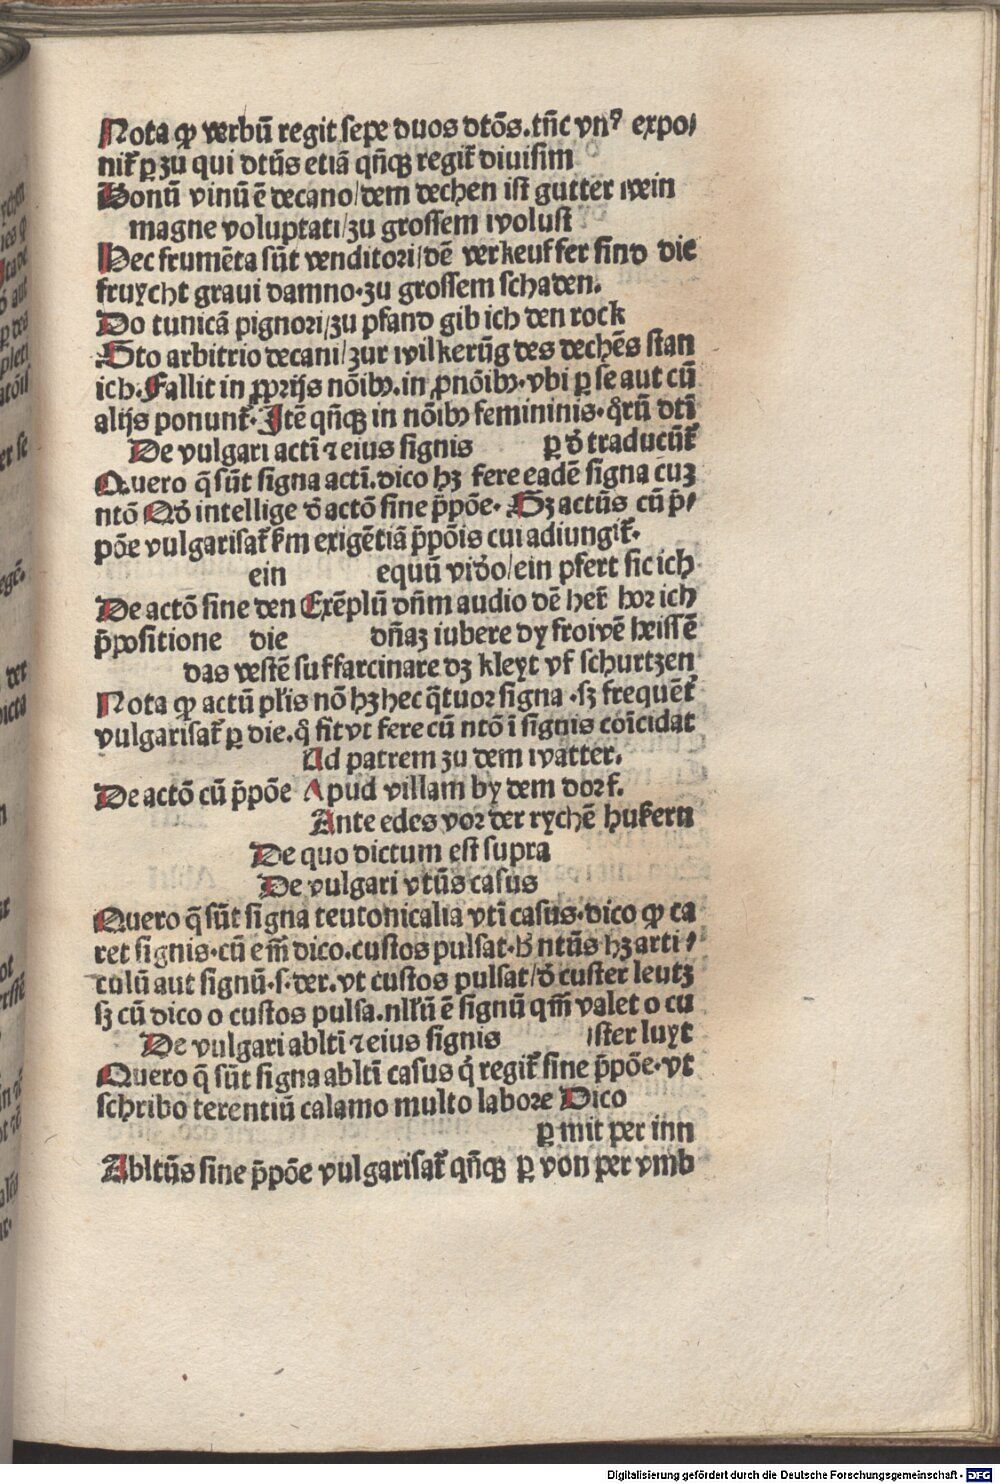 Nota ꝙ verbū regit sepe duos dtōs.tūc vnꝰ expo⸗
nit̄ ꝑ zu qui dtūs etiā qn̄qꝫ regit̄ diuisim
Bonū vinū ē decano/dem dechen ist gutter wein
magne voluptati/zu grossem wolust
Hec frumēta sūt venditori/dē verkeuffer sind die
fruycht graui damno.zu grossem schaden.
Do tunicā pignori/zu pfand gib ich den rock
Sto arbitrio decani/zur wilkerūg des dechēs stan
ich.Fallit in ꝓprijs nōibꝫ.in ꝓnōibꝫ.vbi ꝑ se aut cū
alijs ponunt̄.Itē qn̄qꝫ in nōibꝫ femininis.q̄rū dtī
De vulgari actī ⁊ eius signis ꝑ d̓ traducūt̄
Quero q̄ sūt signa actī.dico hꝫ fere eadē signa cuꝫ
ntō Qd̓ intellige d̓ actō sine p̄pōe. Sꝫ actūs cū p̄⸗
pōe vulgarisat̄ s̄m exigētiā p̄pōis cui adiungit̄.
ein equū vid̓o/ein pfert sic ich
De actō sine den Exēplū dn̄m audio dē her̄ hor ich
p̄positione die dn̄aꝫ iubere dy frowē heissē
das vestē suffarcinare dꝫ kleyt vf schurtzen
Nota ꝙ actū pl̄is nō hꝫ hec q̄tuor signa .sꝫ frequēt̄
vulgarisat̄ ꝑ die.q̄ fit vt fere cū ntō ī signis coīcidat
Ad patrem zu dem watter.
De actō cū p̄pōe Apud villam by dem dorf.
Ante edes vor der rychē hukern
De quo dictum est supra
De vulgari vtūs casus
Quero q̄ sūt signa teutonicalia vtī casus.dico ꝙ ca
ret signis.cū em̄ dico.custos pulsat.ꝫ ntūs hꝫ arti⸗
culū aut signū.s.der.vt custos pulsat/d̓ custer leutꝫ
sꝫ cū dico o custos pulsa.nll̄ū ē signū qm̄ valet o cu
De vulgari abltī ⁊ eius signis /ster luyt
Quero q̄ sūt signa abltī casus q̓ regit̄ sine p̄pōe.vt
schribo terentiū calamo multo labore Dico
ꝑ mit per inn
Abltūs sine p̄pōe vulgarisat̄ qn̄qꝫ ꝑ von per vmb
Digitalisierung gefördert durch die Deutsche Forschungsgemeinschaft - DFG